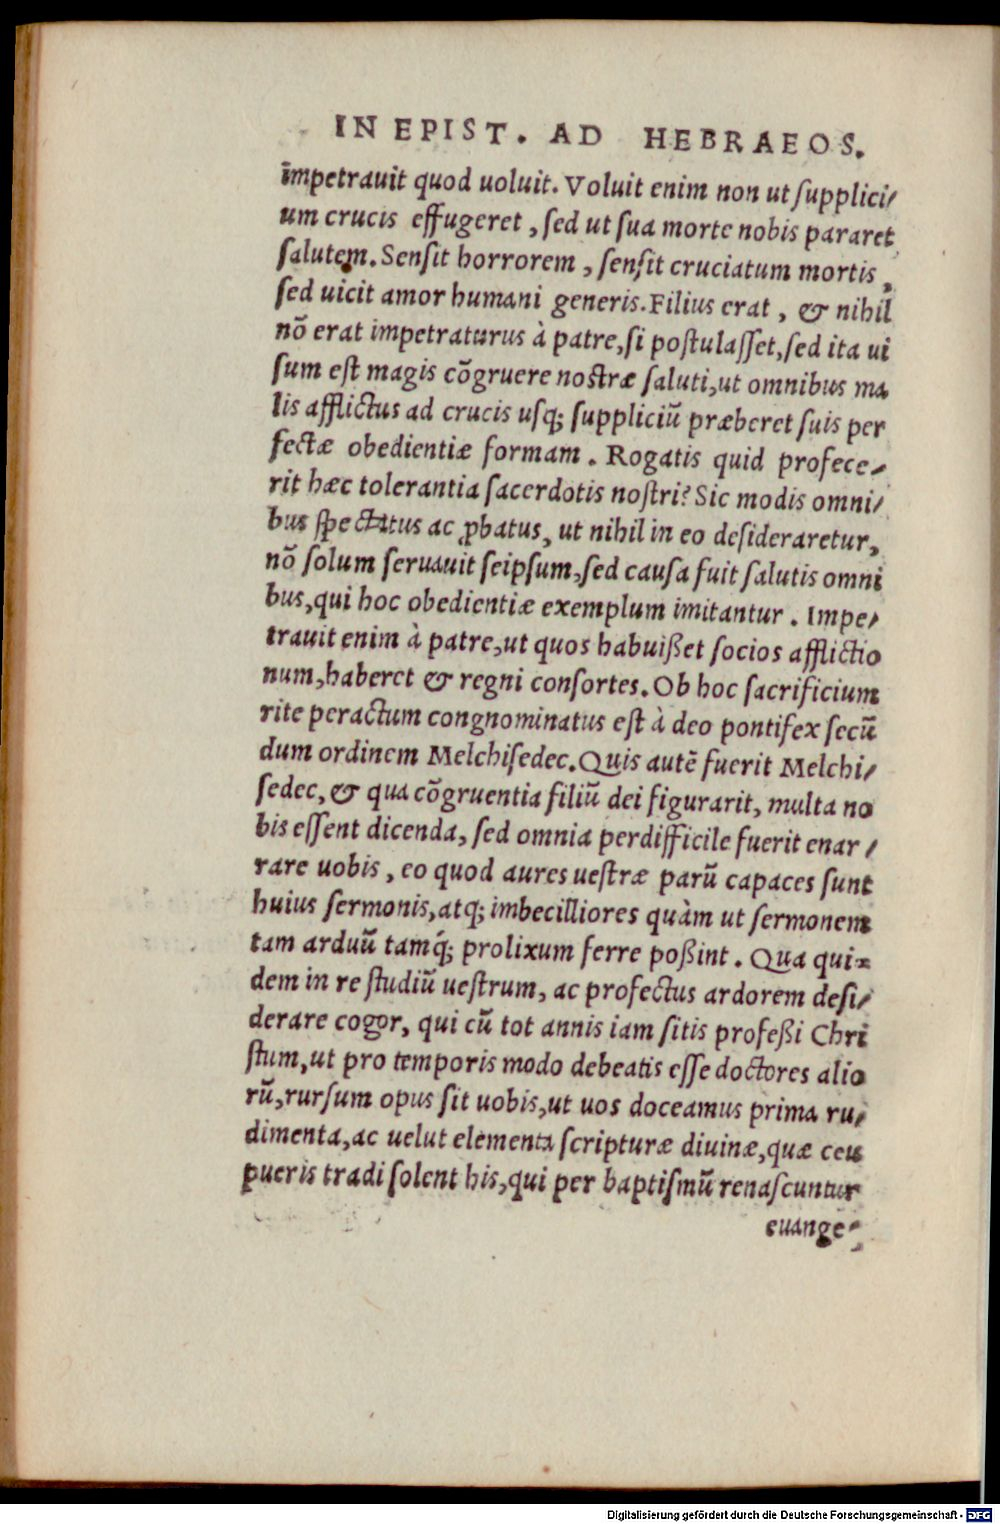 IN EPIST. AD HEBRAEOS.
impetrauit quod uoluit. Voluit enim non ut supplici/
um crucis effugeret, sed ut sua morte nobis pararet
salutem. Sensit horrorem, sensit cruciatum mortis,
sed uicit amor humani generis. Filius erat, & nihil
nō erat impetraturus à patre, si postulasset, sed ita ui
sum est magis cōgruere nostræ saluti, ut omnibus ma
lis afflictus ad crucis usq; suppliciū præberet suis per
fectæ obedientiæ formam. Rogatis quid profece/
rit hæc tolerantia sacerdotis nostri? Sic modis omni/
bus spectatus ac ꝓbatus, ut nihil in eo desideraretur,
nō solum seruauit seipsum, sed causa fuit salutis omni
bus, qui hoc obedientiæ exemplum imitantur. Impe/
trauit enim à patre, ut quos habuißet socios afflictio
num, haberet & regni consortes. Ob hoc sacrificium
rite peractum congnominatus est à deo pontifex secū
dum ordinem Melchisedec. Quis autē fuerit Melchi/
sedec, & qua cōgruentia filiū dei figurarit, multa no
bis essent dicenda, sed omnia perdifficile fuerit enar/
rare uobis, eo quod aures uestræ parū capaces sunt
huius sermonis, atq; imbecilliores quàm ut sermonem
tam arduū tamq́; prolixum ferre poßint. Qua qui=
dem in re studiū uestrum, ac profectus ardorem desi/
derare cogor, qui cū tot annis iam sitis profeßi Chri
stum, ut pro temporis modo debeatis esse doctores alio
rū, rursum opus sit uobis, ut uos doceamus prima ru/
dimenta, ac uelut elementa scripturæ diuinæ, quæ ceu
pueris tradi solent his, qui per baptismū renascuntur
euange/
Digitalisierung gefördert durch die Deutsche Forschungsgemeinschaft - DFG